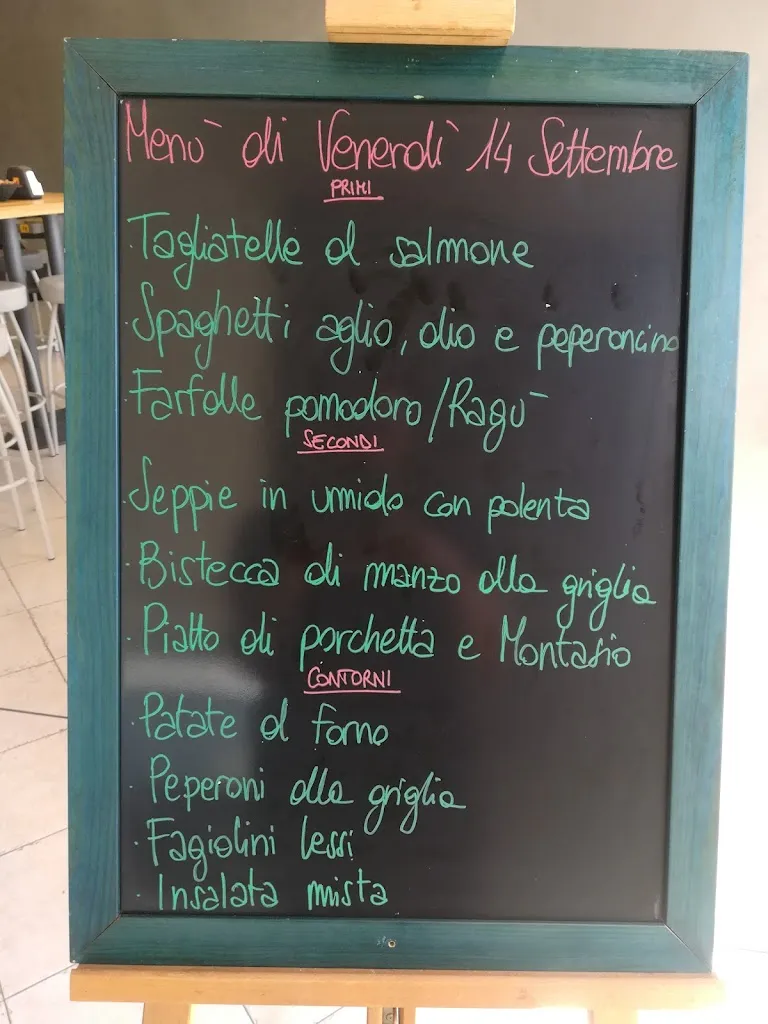 Menù di Venerdì 14 Settembre
PRIMI
· Tagliatelle al salmone
· Spaghetti aglio, olio e peperoncino
· Farfalle pomodoro/Ragù
SECONDI
· Seppie in umido con polenta
· Bistecca di manzo alla griglia
· Piatto di porchetta e Montasio
CONTORNI
· Patate al forno
· Peperoni alla griglia
· Fagiolini lessi
· Insalata mista